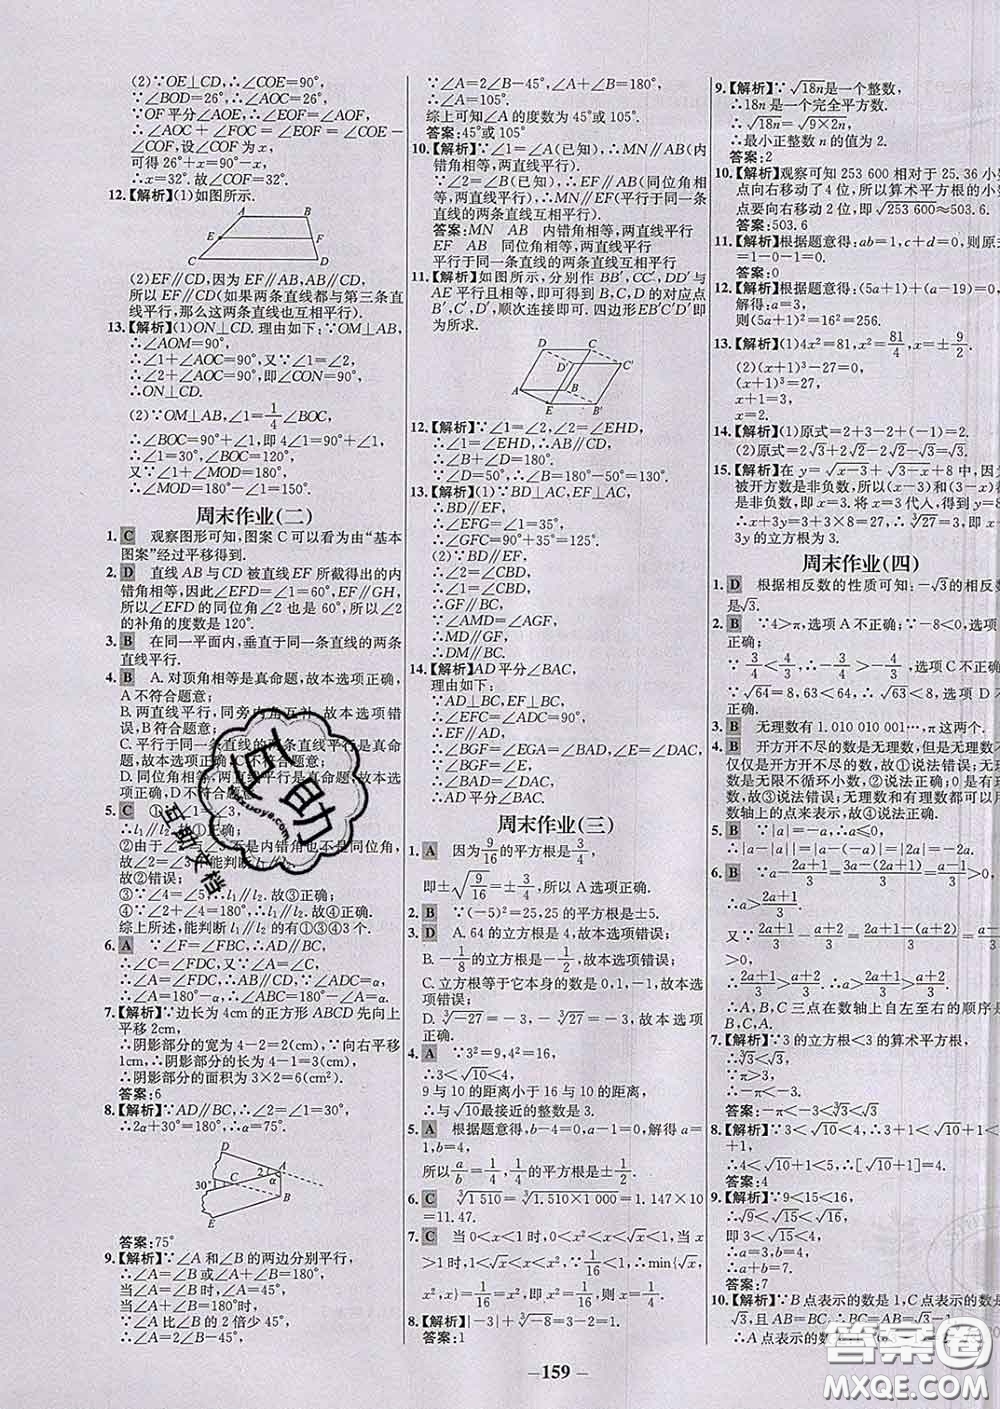 (2)∵OE⊥CD,∴∠COE=90°.
∵∠BOD=26°,∴∠AOC=26°.
∵OF平分∠AOE,∴∠EOF=∠AOF.
∴∠AOC+∠FOC=∠EOF=∠COE-
∠COF,设∠COF为x.
可得26°+x=90°-x.
∴x=32°.故∠COF=32°.
12.【解析】(1)如图所示.
A B
E F
C D
(2)EF∥CD,因为EF∥AB,AB∥CD,
所以EF∥CD(如果两条直线都与第三条直
线平行,那么这两条直线也互相平行).
13.【解析】(1)ON⊥CD.理由如下:∵OM⊥AB,
∴∠AOM=90°,
∴∠1+∠AOC=90°,又∵∠1=∠2,
∴∠2+∠AOC=90°,即∠CON=90°,
∴ON⊥CD.
(2)∵OM⊥AB,∠1=1/4∠BOC,
∴∠BOC=90°+∠1,即4∠1=90°+∠1,
∴∠1=30°,∠BOC=120°,
又∵∠1+∠MOD=180°,
∴∠MOD=180°-∠1=150°.
周末作业(二)
1. C 观察图形可知,图案C可以看为由“基本
图案”经过平移得到.
2. D 直线AB与CD被直线EF所截得出的内
错角相等,因此∠EFD=∠1=60°,EF∥GH,
所以∠EFD的同位角∠2也是60°,所以∠2
的补角的度数是120°.
3. B 在同一平面内,垂直于同一条直线的两条
直线平行.
4. B A.对顶角相等是真命题,故本选项正确,
A不符合题意;
B.两直线平行,同旁内角互补,故本选项错
误,B符合题意;
C.平行于同一条直线的两条直线平行是真命
题,故本选项正确,C不符合题意;
D.同位角相等,两直线平行是真命题,故本选
项正确,D不符合题意.
5. C ①∵∠1=∠3,
∴l₁∥l₂,故①正确;
故②错误;
③∵∠4=∠5,∴l₁∥l₂.故③正确;
④∵∠2+∠4=180°,∴l₁∥l₂.故④正确.
综上所述,能判断l₁∥l₂的有①③④3个.
6. A ∵∠F=∠FBC,∴AD∥BC,
∴∠C=∠FDC,又∵∠A=∠C,
∴∠A=∠FDC,∴AB∥DC,∵∠ADC=α,
∴∠A=180°-α,∴∠C=180°-α.
7.【解析】∵边长为4cm的正方形ABCD先向上
平移2cm,
∴阴影部分的宽为4-2=2(cm),∵向右平移
1cm,∴阴影部分的长为4-1=3(cm),
∴阴影部分的面积为3×2=6(cm²).
答案:6
8.【解析】∵AD∥BC,∴∠2=∠1=α,
∴2α+30°=180°,∴∠α=75°.
D 2 A
α
30° C 1
B
E
答案:75°
9.【解析】∵∠A和∠B的两边分别平行,
∴∠A=∠B或∠A+∠B=180°,
当∠A+∠B=180°时,
∵∠A比∠B的2倍少45°,
∴∠A=2∠B-45°,
∵∠A=2∠B-45°,∠A+∠B=180°,
∴∠A=105°.
综上可知∠A的度数为45°或105°.
答案:45°或105°
10.【解析】∵∠1=∠A(已知),∴MN∥AB(内
错角相等,两直线平行).
∵∠2=∠B(已知),∴EF∥AB(同位角相
等,两直线平行),∴MN∥EF(平行于同一条
直线的两条直线互相平行).
答案:MN AB 内错角相等,两直线平行
EF AB 同位角相等,两直线平行
平行于同一条直线的两条直线互相平行
11.【解析】如图所示,分别作BB′,CC′,DD′与
AE平行且相等,即可得到B,C,D的对应点
B′,C′,D′,顺次连接即可.四边形EB′C′D′即
为所求.
D C
D′ C′
A B
E B′
12.【解析】∵∠1=∠2,∠2=∠EHD,
∴∠1=∠EHD,∴AB∥CD,
∴∠B+∠D=180°,
∵∠D=50°,∴∠B=180°-50°=130°.
13.【解析】(1)∵BD⊥AC,EF⊥AC,
∴BD∥EF,
∴∠EFG=∠1=35°,
∴∠GFC=90°+35°=125°.
(2)∵BD∥EF,
∴∠2=∠CBD,
∴∠1=∠CBD,
∴GF∥BC,
∵∠AMD=∠AGF,
∴MD∥GF,
∴DM∥BC.
14.【解析】AD平分∠BAC,
理由如下:
∵AD⊥BC,EF⊥BC,
∴∠EFC=∠ADC=90°,
∴EF∥AD,
∴∠BGF=∠EGA=∠BAD,∠E=∠DAC,
∵∠BGF=∠E,
∴∠BAD=∠DAC,
∴AD平分∠BAC.
周末作业(三)
1. A 因为9/16的平方根是±3/4,
即±√(9/16)=±3/4,所以A选项正确.
2. B ∵(-5)²=25,25的平方根是±5.
3. D A.64的立方根是4,故本选项错误;
B.-1/8的立方根是-1/2,故本选项错误;
C.立方根等于它本身的数是0,1,-1,故本选
项错误;
D.∛-27=-3,-∛27=-3,故本选项
正确.
4. A ∵3²=9,4²=16,
∴3<√10<4,
9与10的距离小于16与10的距离,
∴与√10最接近的整数是3.
5. A 根据题意得,b-4=0,a-1=0,解得a=
1,b=4,
所以a/b=1/4,1/4的平方根是±1/2.
6. C ∛1 510=∛1.510×1 000=1.147×10
=11.47.
7. C 当0<x<1时,0<x²<x<√x<1,当x
>1时,1<√x<x<x²,∴min{√x,
x²,x}=1/16=x²=1/16,所以x=1/4.
8.【解析】|-3|+∛-8=3-2=1.
答案:1
9.【解析】∵√18n是一个整数,
∴18n是一个完全平方数.
∴√18n=√9×2n,
∴最小正整数n的值为2.
答案:2
10.【解析】观察可知253 600相对于25.36小数
点向右移动了4位,所以算术平方根的小数
点要向右移动2位,即√253 600≈503.6.
答案:503.6
11.【解析】根据题意得:ab=1,c+d=0,则原式
=1-0-1=0.
答案:0
12.【解析】根据题意得:(5a+1)+(a-19)=0,
解得:a=3,
则(5a+1)²=16²=256.
13.【解析】(1)4x²=81,x²=81/4,x=±9/2.
(2)(x+1)³-27=0,
(x+1)³=27,
x+1=3,
x=2.
14.【解析】(1)原式=2+3-2+(-1)=2.
(2)原式=2√3+2√2-2√2-√3=√3.
15.【解析】在y=√x-3+√3-x+8中,因为
被开方数是非负数,所以(x-3)和(3-x)都
是非负数,即x=3.将x=3代入,得到y=8
∴x+3y=3+3×8=27,∴∛27=3,即x+3y
的立方根为3.
周末作业(四)
1. D 根据相反数的性质可知:-√3的相反数
是√3.
2. B ∵4>π,选项A不正确;∵-8<0,选项B
正确;
∵√64=8,63<64,∴√63<8,选项D不
正确.
3. B 无理数有1.010 010 001…,π这两个.
4. B 开方开不尽的数是无理数,但是无理数不
数是无限不循环小数,②说法正确;0是有理
数轴上的点来表示,故④说法正确.
5. B ∵|a|=-a,∴a≤0,
∴|a-|a||=|a-(-a)|=|2a|=-2a.
∴a>(2a+1)/3.
又∵(2a+1)/3-(a+2)/3=(2a+1-(a+2))/3=(a-1)/3
>0,
∴(2a+1)/3>(a+2)/3,∴a>(2a+1)/3>(a+2)/3.
∴A,B,C三点在数轴上自左至右的顺序是
B,C,A.
7.【解析】∵3的立方根<3的算术平方根,
∴∛3<√3,
∵π>3,
∴-π<-3,
答案:-π<-3<∛3<√3
8.【解析】∵3<√10<4,∴3+1<√10+1<4
+1,
∴4<√10+1<5,∴[√10+1]=4.
答案:4
9.【解析】∵9<15<16,
∴√9<√15<√16,
即3<√15<4,
∴a=3,b=4,
∴a+b=7.
答案:7
10.【解析】∵B点表示的数是1,C点表示的数是
√3,且AB=BC,∴AB=BC=√3-1,
∴A点表示的数
- 159 -
互助
互助文档
答案圈
MXQE.COM